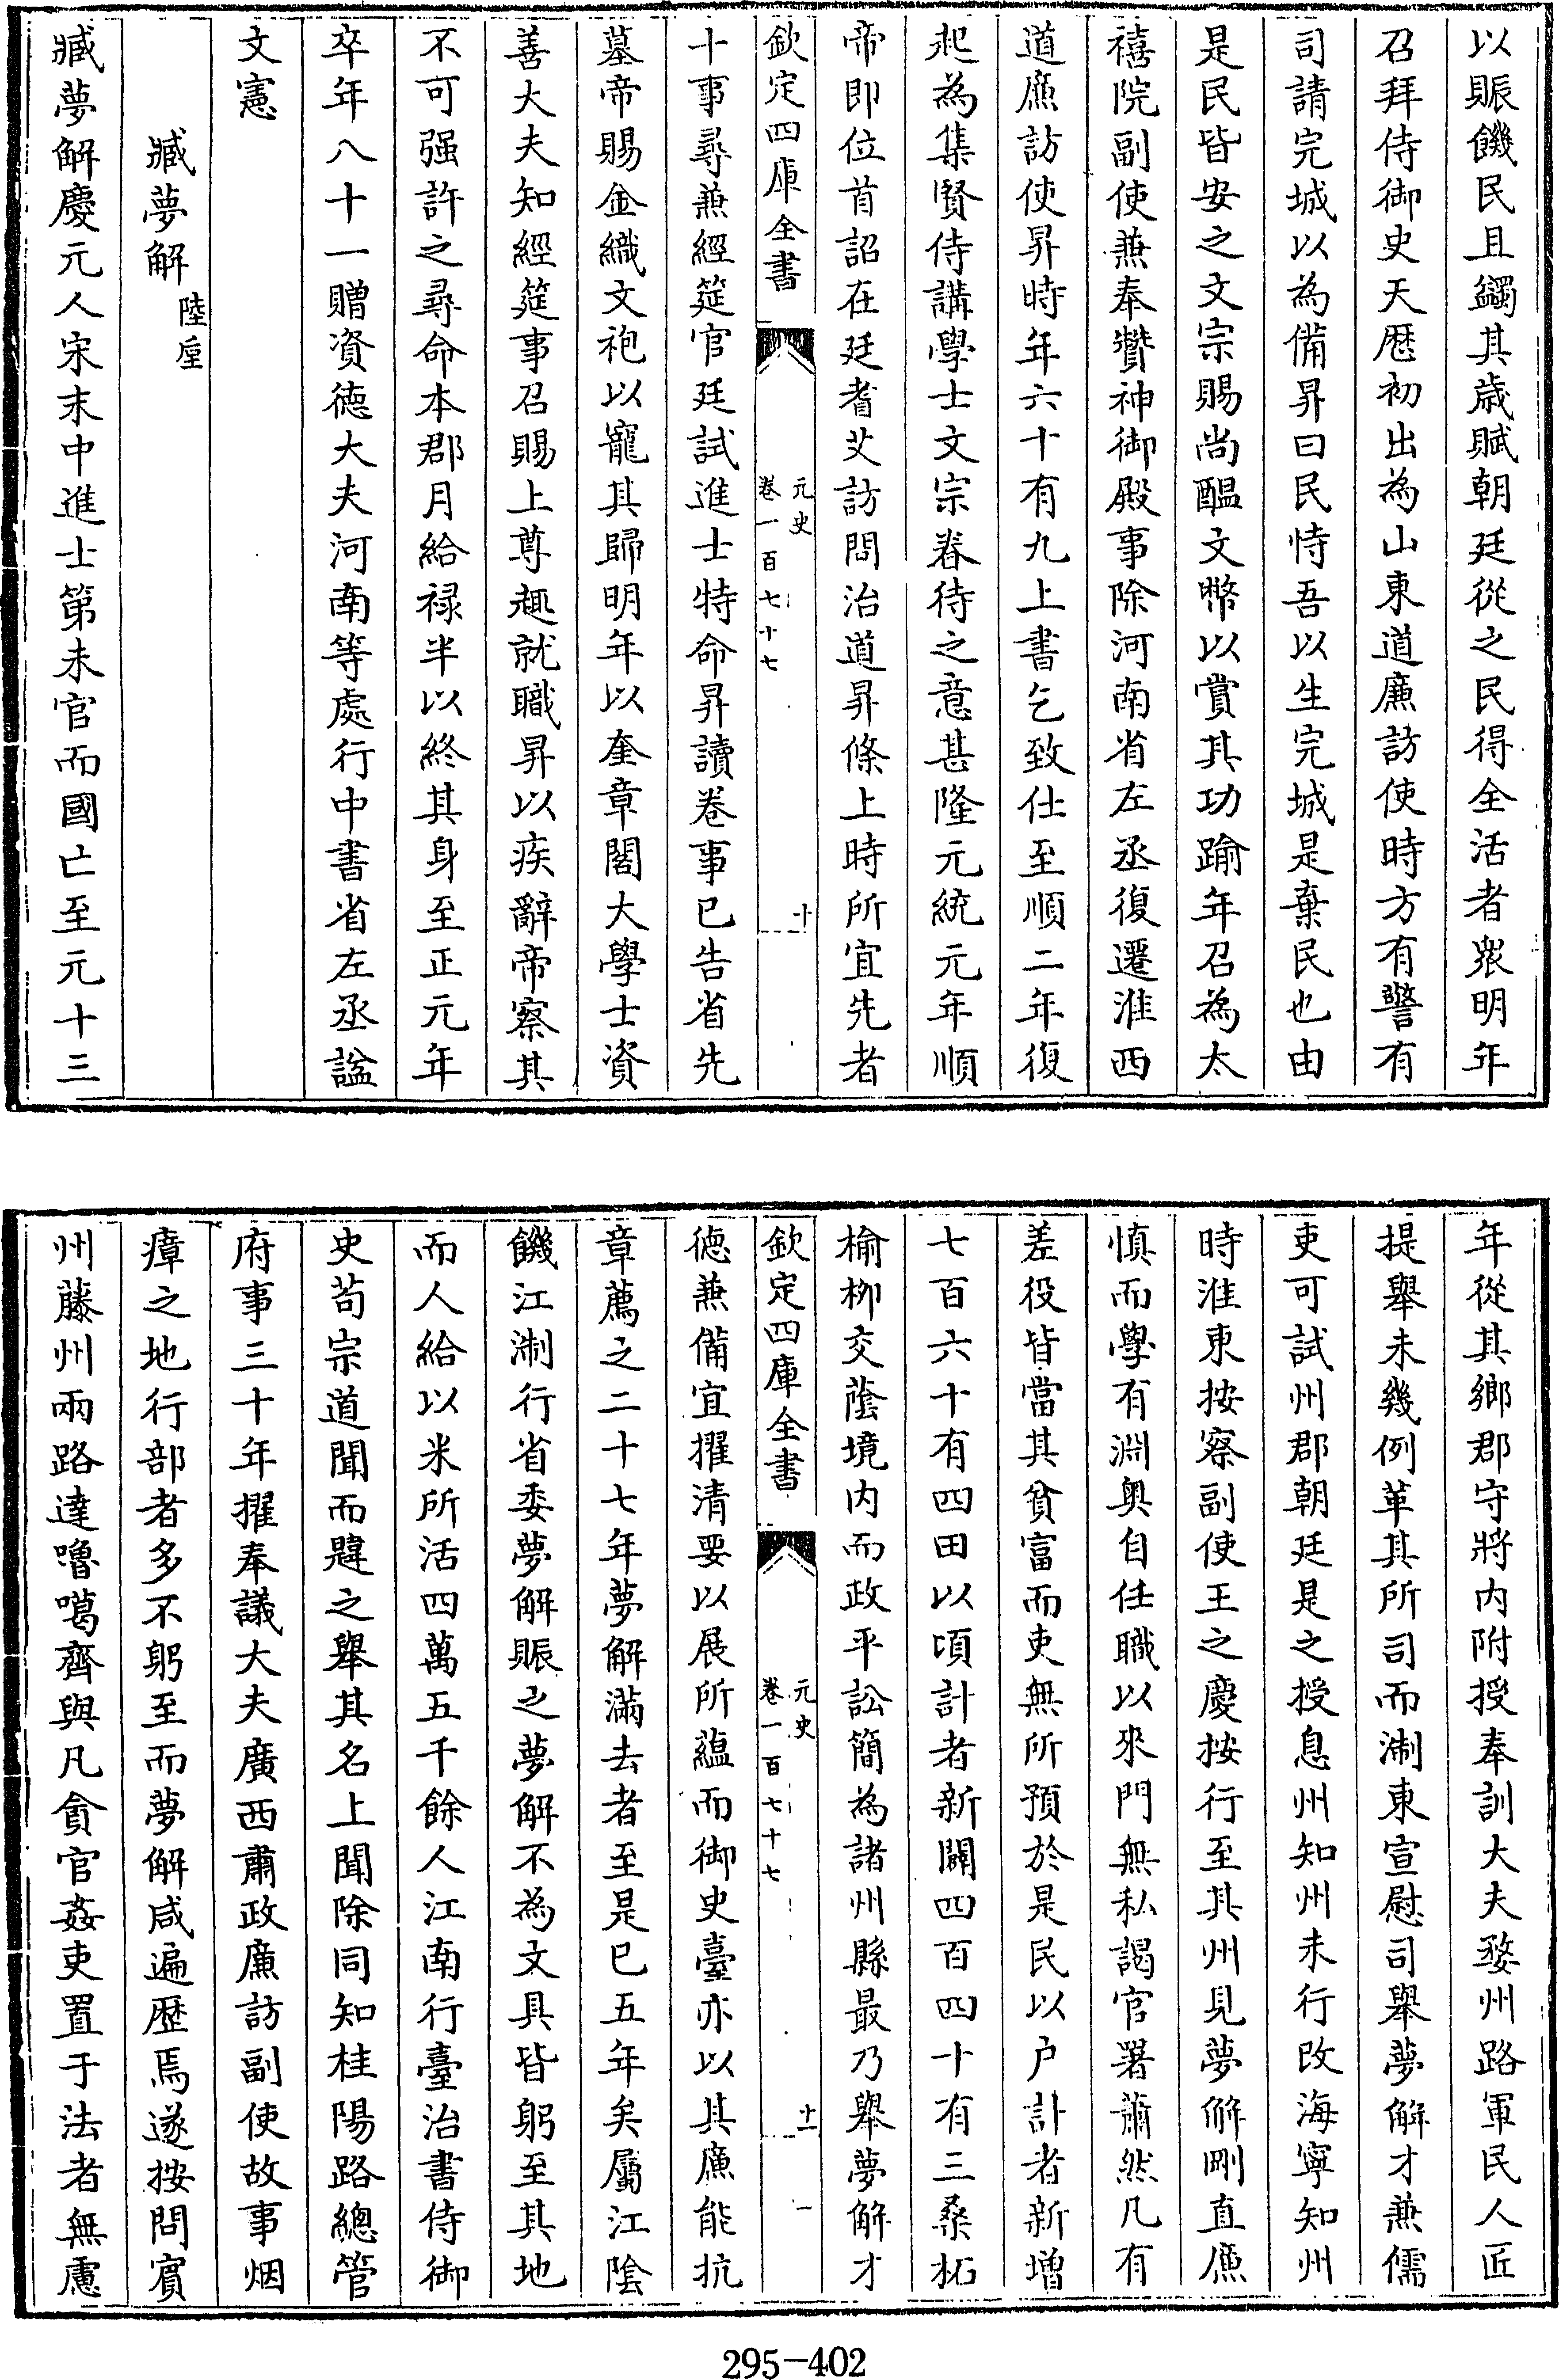 以賑饑民且蠲其歳賦朝廷從之民得全活者衆明年
召拜侍御史天厯初出為山東道廉訪使時方有警有
司請完城以為備昇曰民恃吾以生完城是棄民也由
是民皆安之文宗賜尚醖文幣以賞其功踰年召為太
禧院副使兼奉贊神御殿事除河南省左丞復遷淮西
道廉訪使昇時年六十有九上書乞致仕至順二年復
起為集賢侍講學士文宗眷待之意甚隆元統元年順
帝即位首詔在廷耆艾訪問治道昇條上時所宜先者
欽定四庫全書
元史
卷一百七十七
十
十事尋兼經筵官廷試進士特命昇讀卷事已告省先
墓帝賜金織文袍以寵其歸明年以奎章閣大學士資
善大夫知經筵事召賜上尊趣就職昇以疾辭帝察其
不可强許之尋命本郡月給禄半以終其身至正元年
卒年八十一贈資徳大夫河南等處行中書省左丞諡
文憲
臧夢解 陸垕
臧夢解慶元人宋末中進士第未官而國亡至元十三
年從其鄉郡守將内附授奉訓大夫婺州路軍民人匠
提舉未幾例革其所司而淛東宣慰司舉夢解才兼儒
吏可試州郡朝廷是之授息州知州未行改海寧知州
時淮東按察副使王之慶按行至其州見夢解剛直廉
慎而學有淵奥自任職以來門無私謁官署蕭然凡有
差役皆當其貧富而吏無所預於是民以户計者新增
七百六十有四田以頃計者新闢四百四十有三桑柘
榆柳交蔭境内而政平訟簡為諸州縣最乃舉夢解才
欽定四庫全書
元史
卷一百七十七
十一
徳兼備宜擢清要以展所蘊而御史臺亦以其廉能抗
章薦之二十七年夢解滿去者至是已五年矣屬江陰
饑江淛行省委夢解賑之夢解不為文具皆躬至其地
而人給以米所活四萬五千餘人江南行臺治書侍御
史苟宗道聞而韙之舉其名上聞除同知桂陽路總管
府事三十年擢奉議大夫廣西肅政廉訪副使故事烟
瘴之地行部者多不躬至而夢解咸遍歴焉遂按問賓
州藤州兩路達嚕噶齊與凡貪官姦吏置于法者無慮
295-402